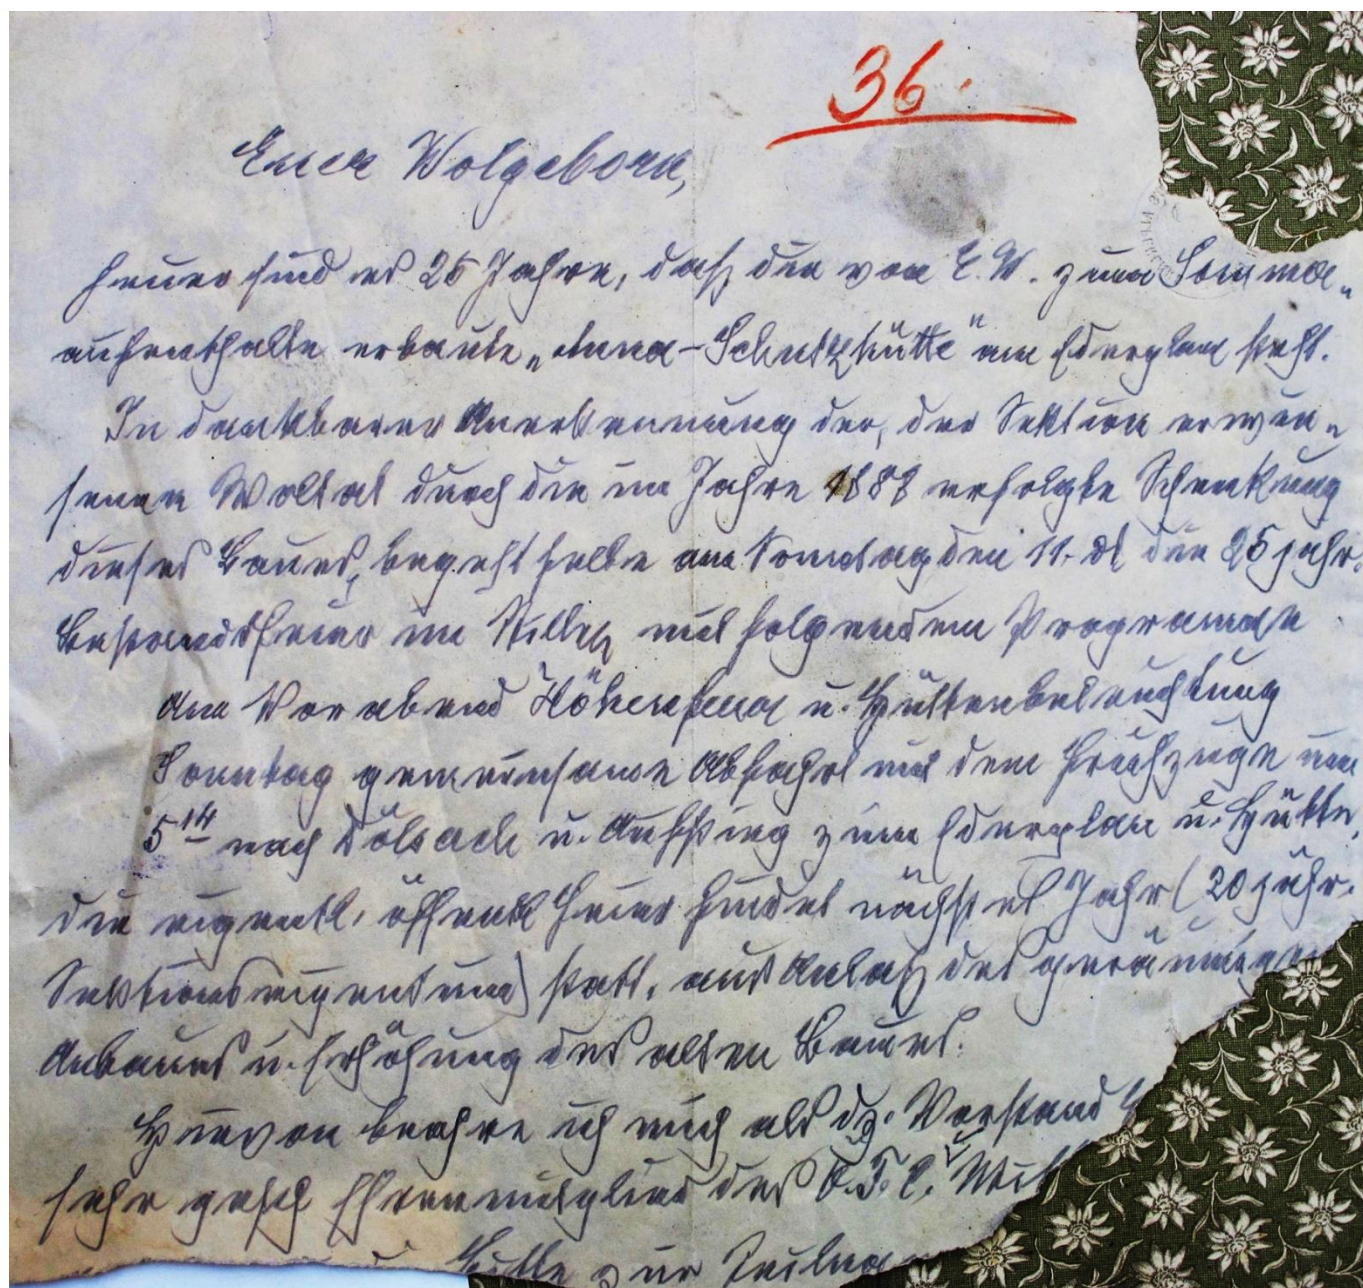 36.
Euer Wolgeborn,
heuer sind es 25 Jahre, daß die von E. W. zum Sommer„
aufenthalte erbaute „Anna-Schutzhütte" am Ederplan steht.
In dankbarer Anerkennung der, der Sektion erwie„
senen Woltat durch die im Jahre 1888 erfolgte Schenkung
dieses Baues, begeht selbe am Sonntag den 11. ds die 25 jähr.
Bestandsfeier im Stillen mit folgendem Programme
Am Vorabend Höhenfeuer u. Hüttenbeleuchtung
Sonntag gemeinsame Abfahrt mit dem Frühzuge um
5 14 nach Dölsach u. Aufstieg zum Ederplan u. Hütte,
die eigentl. öffentl Feier findet nächstes Jahr (20 jähr.
Sektionseigentum) statt, aus Anlaß des geräumigen
Anbaues u. Erhöhung des alten Baues.
Hievon beehre ich mich als dz. Vorstand
sehr gesch Ehrenmitglied des
Hütte zur Teilna